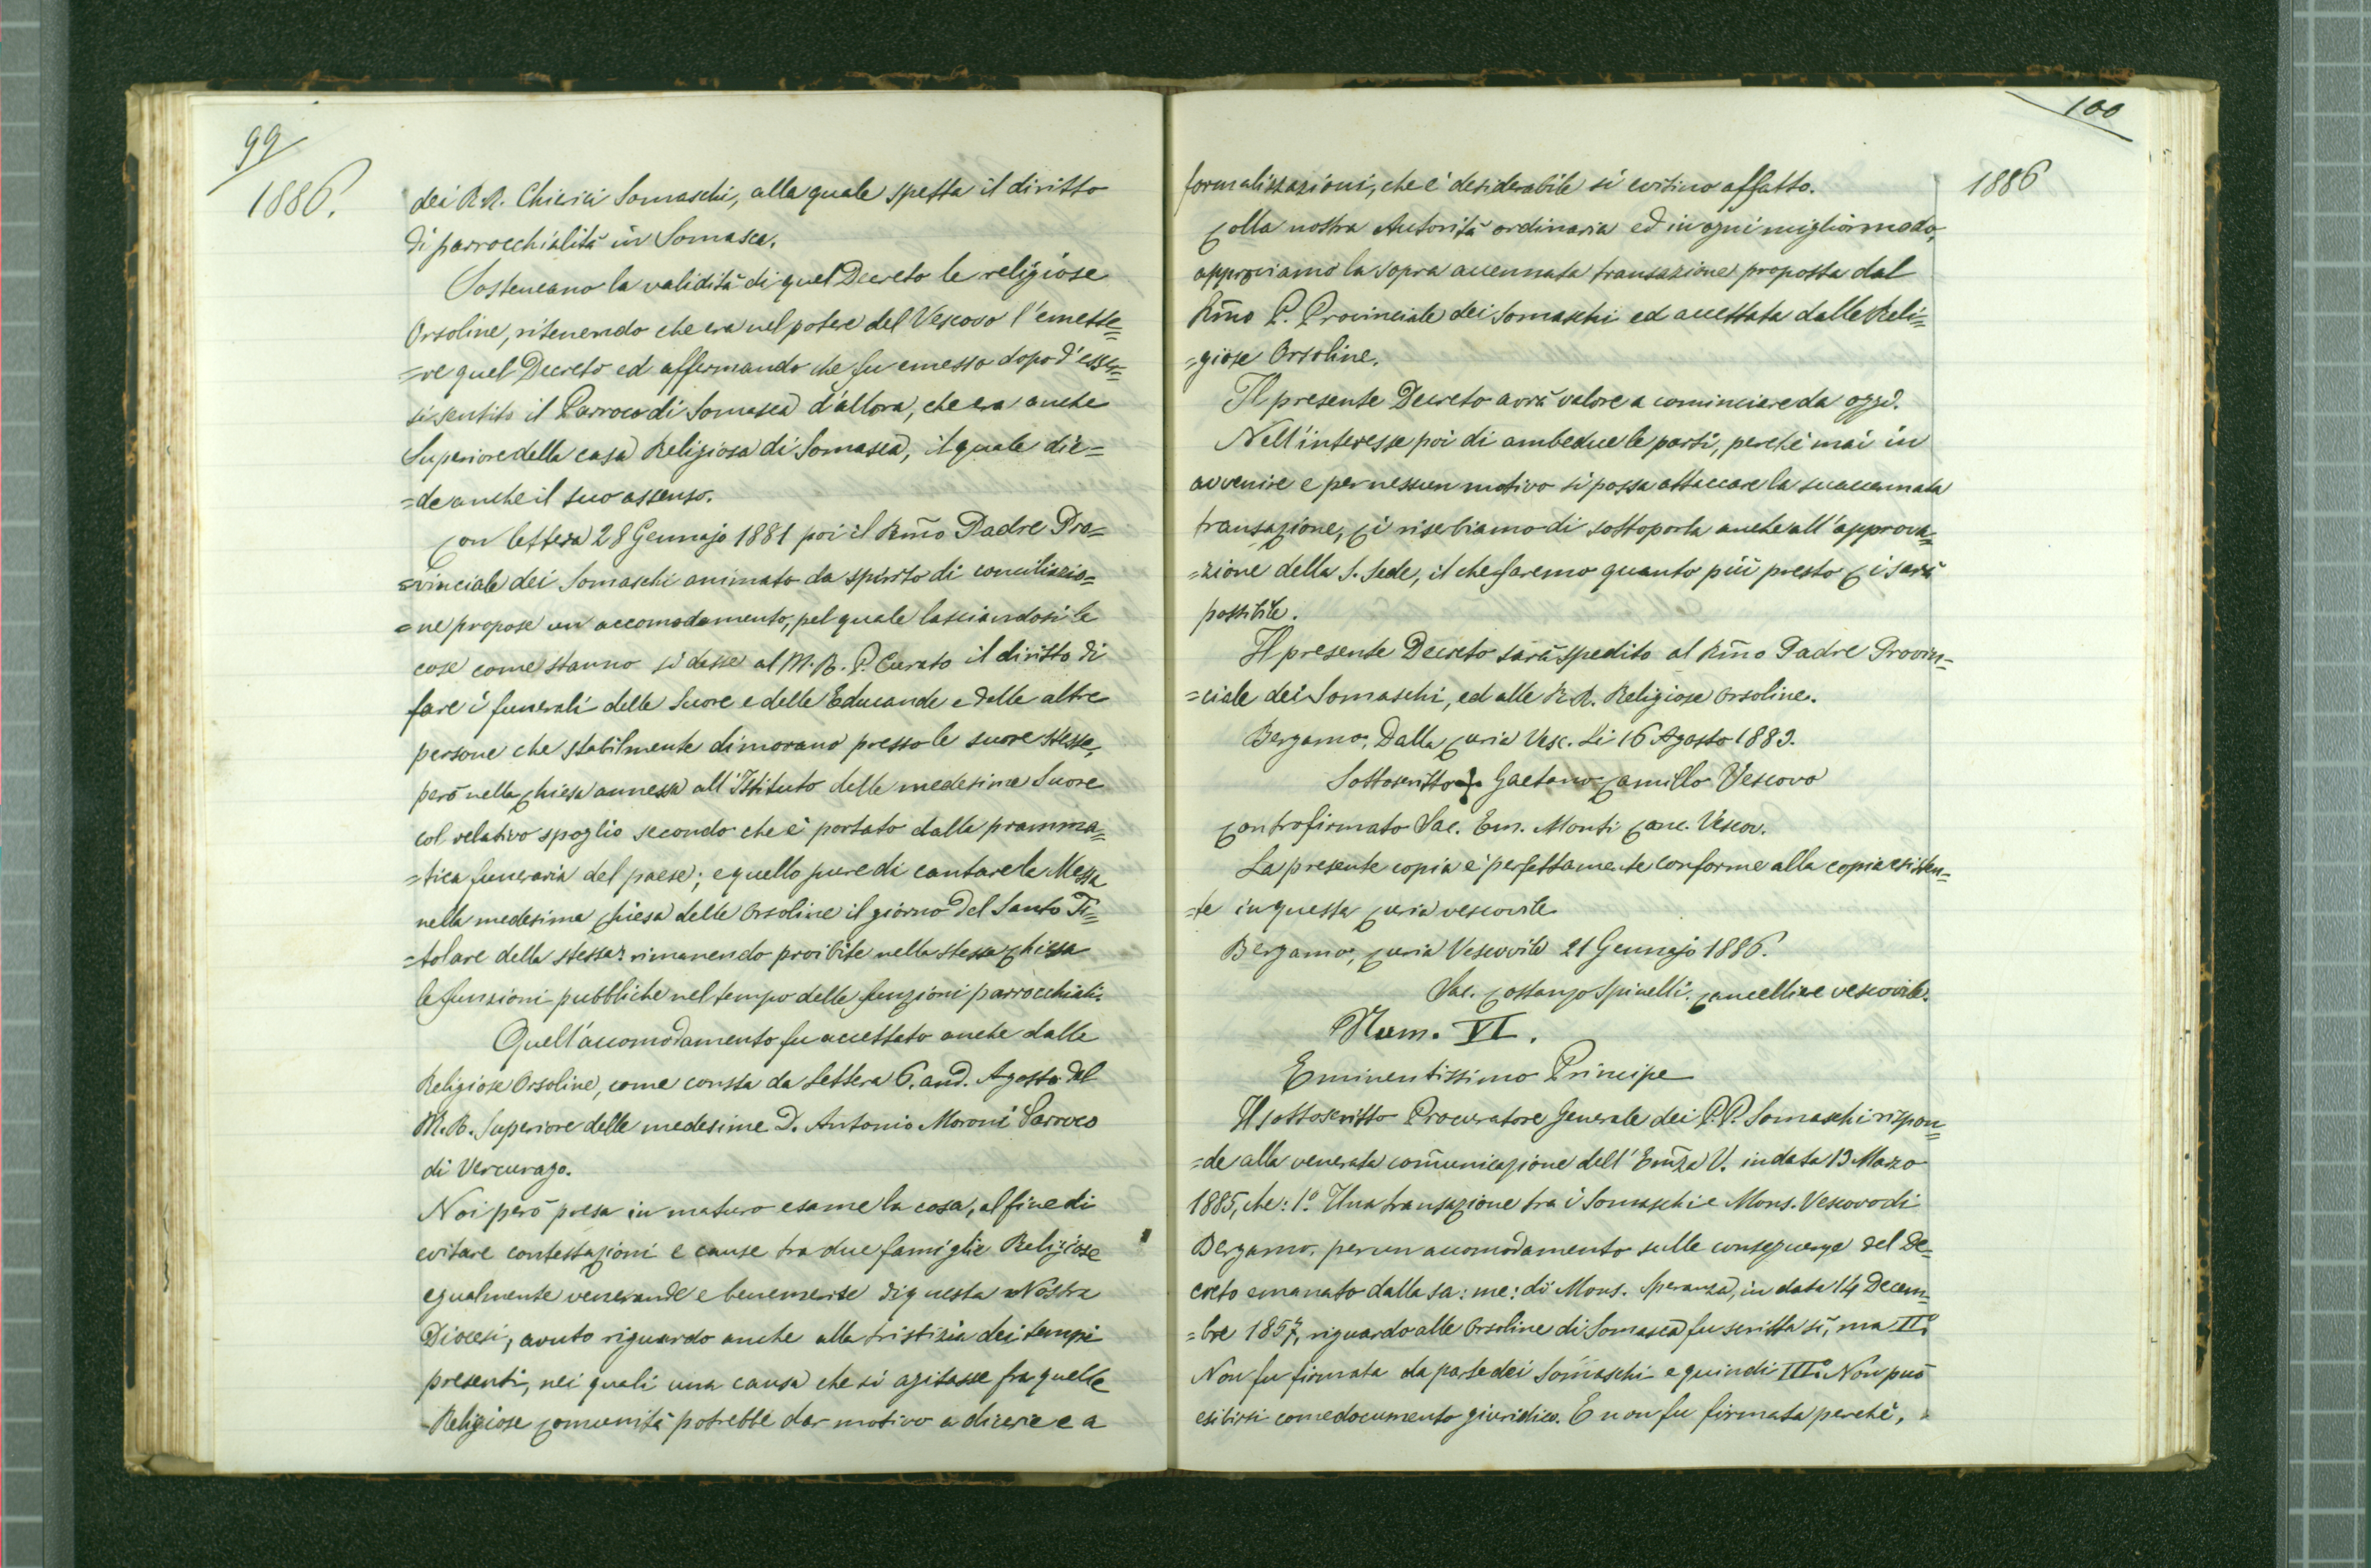 99
1886.
dei R.R. Chierici Somaschi, alla quale spetta il diritto
di parrocchialità in Somasca.
Sosteneano la validità di quel Decreto le religiose
Orsoline, ritenendo che era nel potere del Vescovo l'emette=
=re quel Decreto ed affermando che fu emesso dopo d'esser=
si sentito il Parroco di Somasca d'allora, che era anche
Superiore della casa Religiosa di Somasca, il quale die=
=de anche il suo assenso.
Con lettera 28 Gennajo 1881 poi il Rm̃o Padre Pro=
=vinciale dei Somaschi animato da spirito di conciliazio=
=ne propose un accomodamento, pel quale lasciandosi le
cose come stanno si desse al M. R. P. Curato il diritto di
fare i funerali delle Suore e delle Educande e delle altre
persone che stabilmente dimorano presso le suore stesse,
però nella Chiesa annessa all'Istituto delle medesime Suore
col relativo spoglio secondo che è portato dalla pramma=
=tica funeraria del paese; e quello pure di cantare la Messa
nella medesima Chiesa delle Orsoline il giorno del Santo Ti=
=tolare della stessa: rimanendo proibite nella stessa Chiesa
le funzioni pubbliche nel tempo delle funzioni parrocchiali.
Quell'accomodamento fu accettato anche dalle
Religiose Orsoline, come consta da lettera 6. and. Agosto del
M. R. Superiore delle medesime D. Antonio Moroni Parroco
di Vercurago.
Noi però presa in maturo esame la cosa, al fine di
evitare contestazioni e cause tra due famiglie Religiose
egualmente venerande e benemerite di questa Nostra
Diocesi, avuto riguardo anche alla tristizia dei tempi
presenti, nei quali una causa che si agitasse fra quelle
Religiose Comunità potrebbe dar motivo a dicerie e a
100
1886
formalizzazioni, che è desiderabile si evitino affatto.
Colla nostra Autorità ordinaria ed in ogni miglior modo,
approviamo la sopra accennata transazione proposta dal
Rm̃o P. Provinciale dei Somaschi ed accettata dalle Reli=
=giose Orsoline.
Il presente Decreto avrà valore a cominciare da oggi.
Nell'interesse poi di ambedue le parti, perchè mai in
avvenire e per nessun motivo si possa attaccare la suaccennata
transazione, Ci riserbiamo di sottoporla anche all'approva=
=zione della S. Sede, il che faremo quanto più presto Ci sarà
possibile.
Il presente Decreto sarà spedito al Rm̃o Padre Provin=
=ciale dei Somaschi, ed alle R.R. Religiose Orsoline.
Bergamo, Dalla Curia Vesc. Li 16 Agosto 1883.
Sottoscritto + Gaetano Camillo Vescovo
Controfirmato Sac. Em. Monti Canc. Vescov.
La presente copia è perfettamente conforme alla copia esisten=
=te in questa Curia vescovile
Bergamo, Curia Vescovile 21 Gennajo 1886.
Sac. Costanzo Spinelli. Cancelliere vescovile.
Num. VI.
Eminentissimo Principe
Il sottoscritto Procuratore Generale dei P.P. Somaschi rispon=
=de alla venerata com̃unicazione dell'Em̃za V. in data 13 Marzo
1885, che: 1.° Una transazione tra i Somaschi e Mons. Vescovo di
Bergamo, per un accomodamento sulle conseguenze del De=
creto emanato dalla sa: me: di Mons. Speranza, in data 14 Decem=
=bre 1857, riguardo alle Orsoline di Somasca fu scritta sì, ma II.°
Non fu firmata da parte dei Somaschi e quindi III.° Non può
esibirsi come documento giuridico. E non fu firmata perchè,